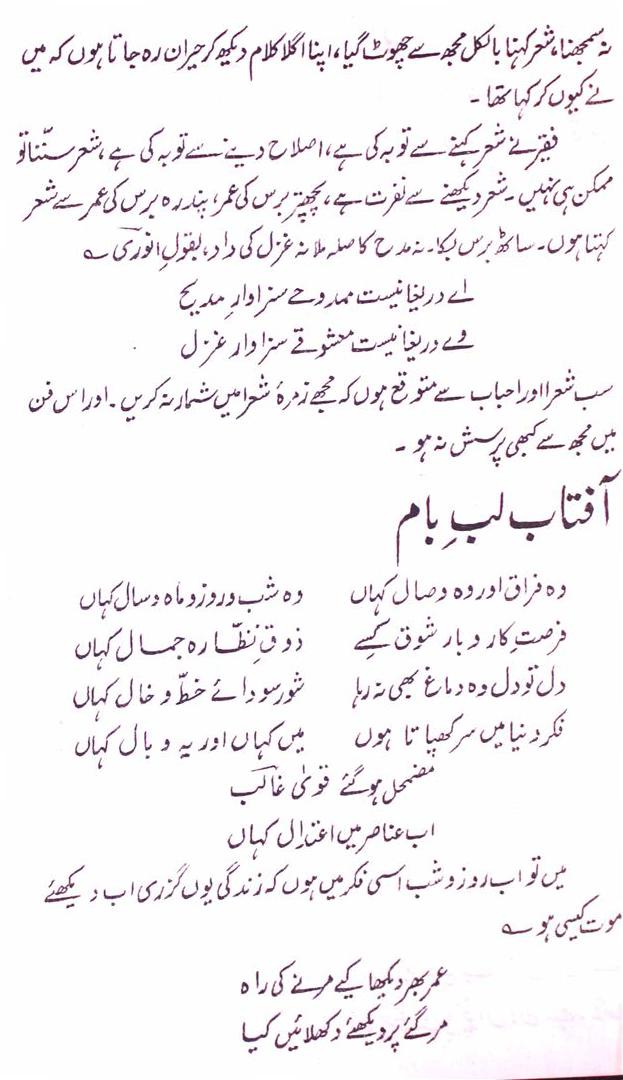 نہ سمجھنا، شعر کہنا بالکل مجھ سے چھوٹ گیا، اپنا اگلا کلام دیکھ کر حیران رہ جاتا ہوں کہ میں
نے کیوں کر کہا تھا۔
فقیر نے شعر کہنے سے توبہ کی ہے، اصلاح دینے سے توبہ کی ہے، شعر سننا تو
ممکن ہی نہیں۔ شعر دیکھنے سے نفرت ہے، پچھتر برس کی عمر، پندرہ برس کی عمر سے شعر
کہتا ہوں۔ ساٹھ برس بکا۔ نہ مدح کا صلہ ملا نہ غزل کی داد، بقولِ انوری ؎
اے دریغا نیست ممدوحے سزاوارِ مدیح
وے دریغا نیست معشوقے سزاوارِ غزل
سب شعرا اور احباب سے متوقع ہوں کہ مجھے زمرۂ شعرا میں شمار نہ کریں۔ اور اس فن
میں مجھ سے کبھی پرسش نہ ہو۔
آفتاب لبِ بام
وہ فراق اور وہ وصال کہاں وہ شب و روز و ماہ و سال کہاں
فرصتِ کار و بار شوق کسے ذوقِ نظّارہ جمال کہاں
دل تو دل وہ دماغ بھی نہ رہا شور سودائے خطّ و خال کہاں
فکر دنیا میں سر کھپاتا ہوں میں کہاں اور یہ وبال کہاں
مضمحل ہو گئے قویٰ غالب
اب عناصر میں اعتدال کہاں
میں تو اب روز و شب اسی فکر میں ہوں کہ زندگی یوں گزری اب دیکھئے
موت کیسی ہو ؎
عمر بھر دیکھا کیے مرنے کی راہ
مر گئے پر دیکھئے دکھلائیں کیا